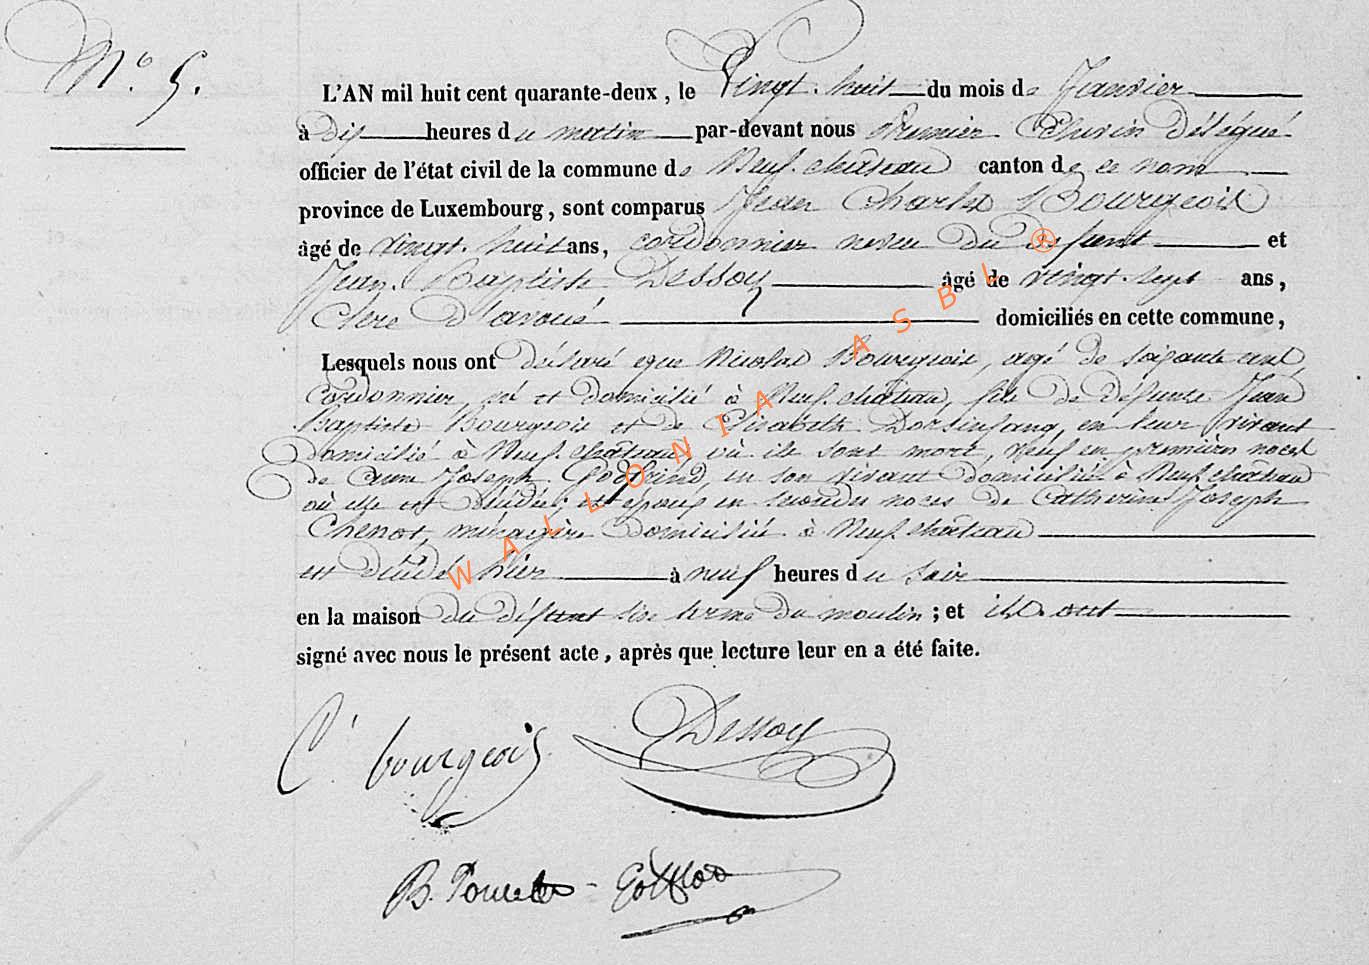 N.° 5.
L'AN mil huit cent quarante-deux, le Vingt-huit du mois de Janvier
à dix heures du matin par-devant nous Premier Echevin Délégué
officier de l'état civil de la commune de Neufchâteau canton de ce nom
province de Luxembourg, sont comparus Jean Charles Bourgeois
âgé de vingt-huit ans, cordonnier neveu du défunt et
Jean-Baptiste Dessoy âgé de vingt-sept ans,
Clerc d'avoué domiciliés en cette commune,
Lesquels nous ont déclaré que Nicolas Bourgeois, agé de soixante ans,
Cordonnier, né et domicilié à Neufchâteau, fils de défunts Jean
Baptiste Bourgeois et de Elisabeth, en leur vivant
domiciliés à Neufchâteau, où ils sont mort, veuf en premières noces
de Joseph, en son vivant domiciliée à Neufchâteau
où elle est décédée; et époux en secondes noces de Catherine Joseph
Chenot, ménagère domiciliée à Neufchâteau
est décédé hier à neuf heures du soir
en la maison du défunt du moulin; et ils ont
signé avec nous le présent acte, après que lecture leur en a été faite.
C. bourgeois
Dessoy
WALLONIA ASBL ®